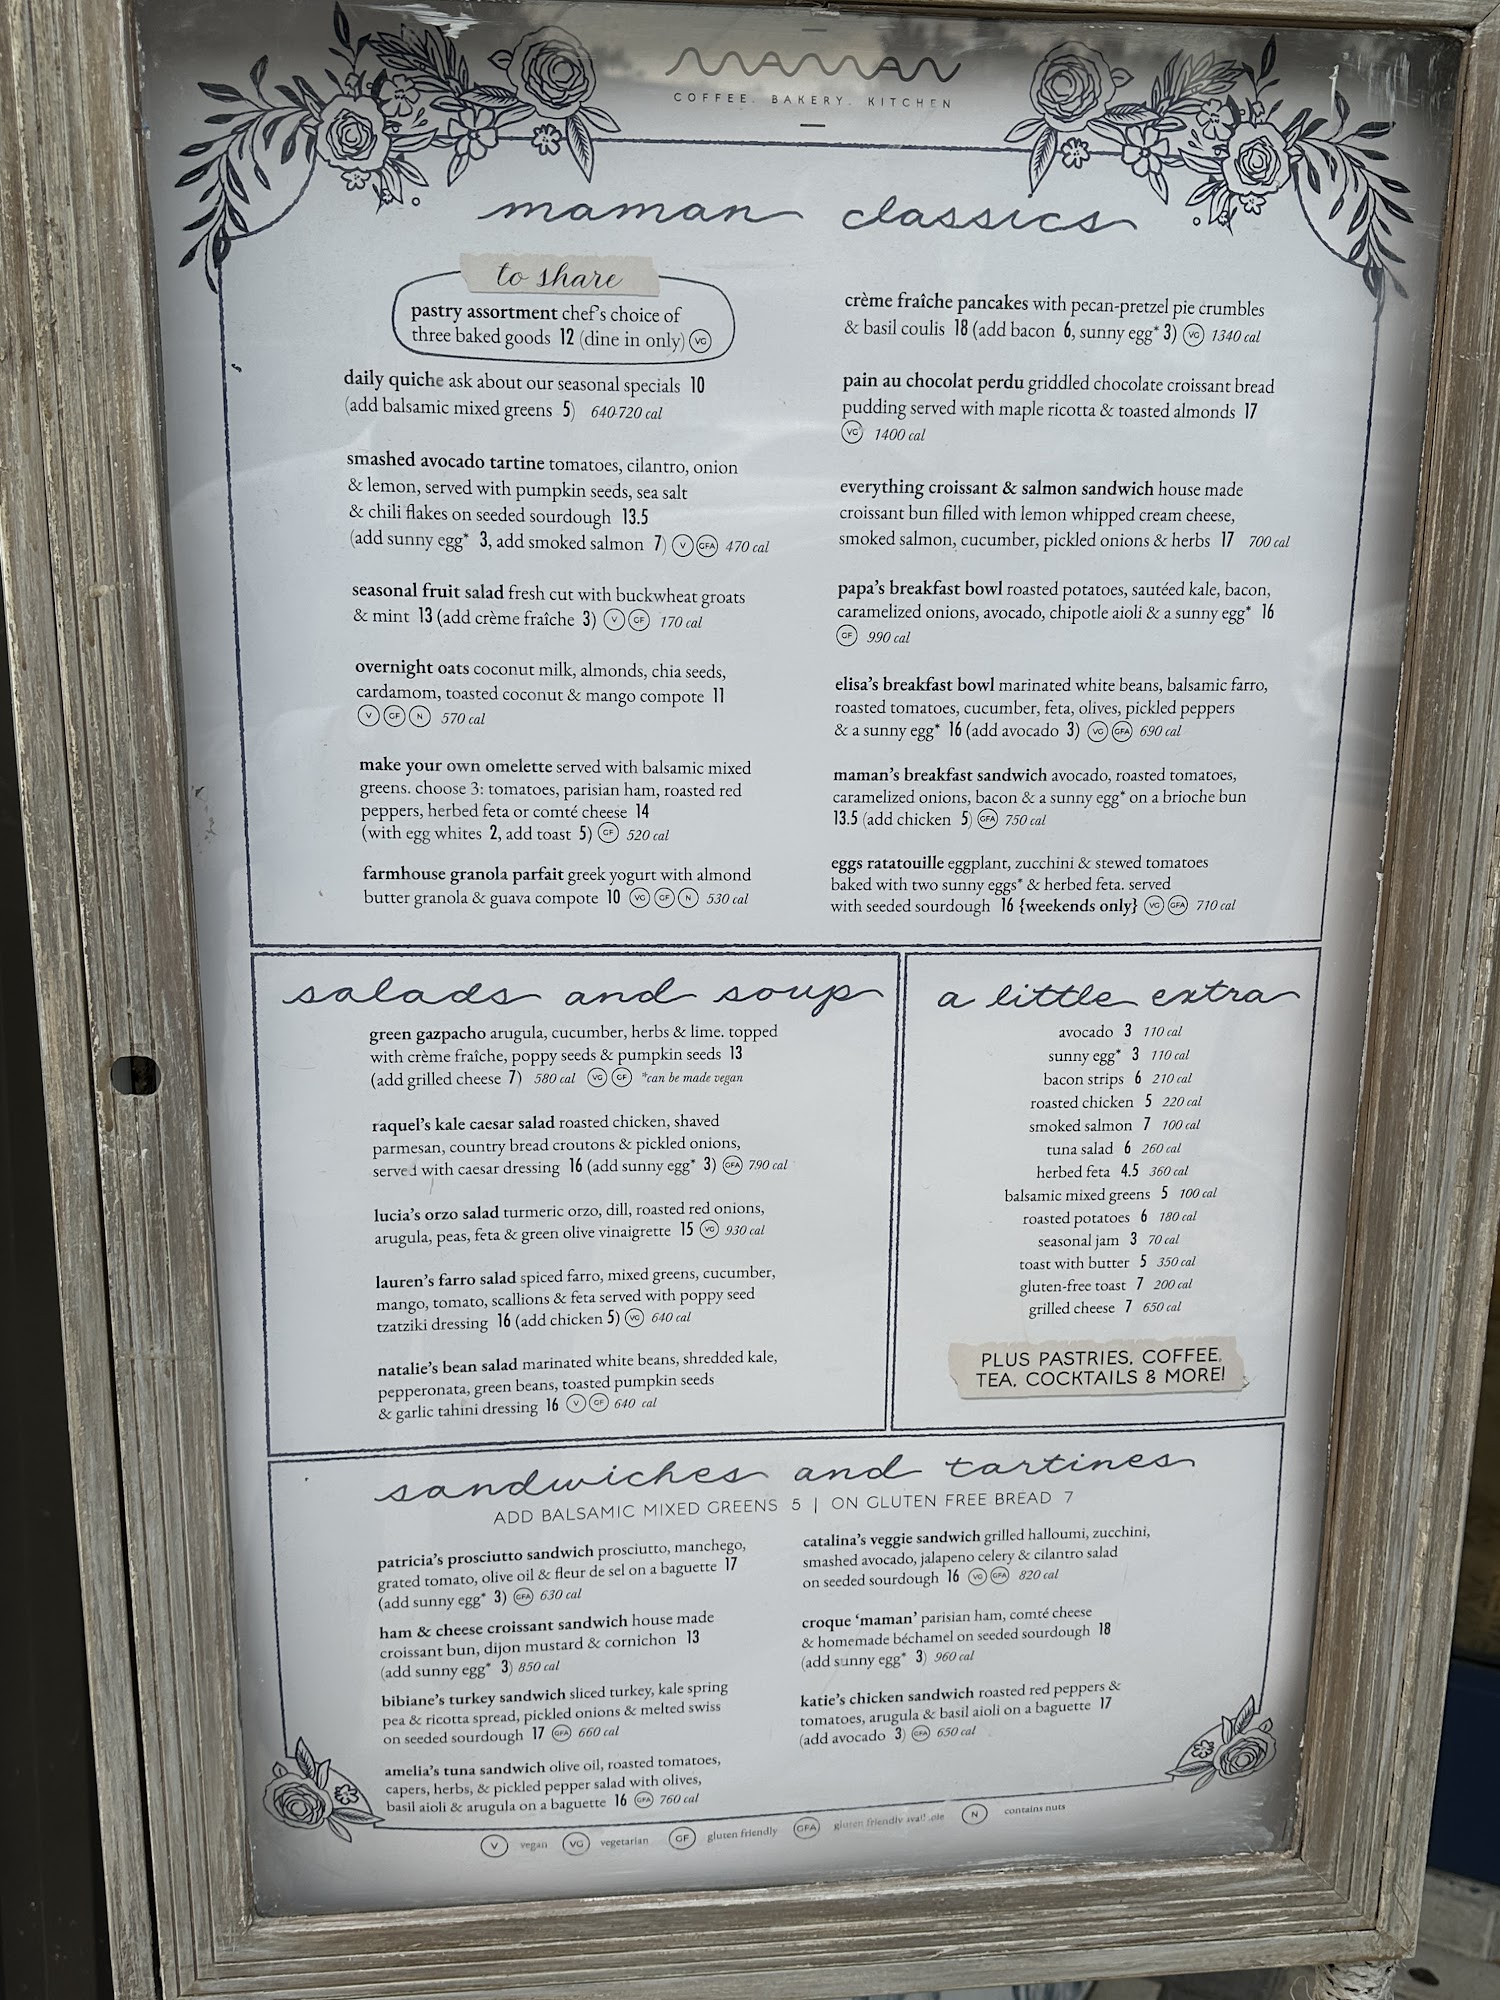 MAMAN
COFFEE. BAKERY. KITCHEN
maman classics
to share
pastry assortment chef's choice of
three baked goods 12 (dine in only) VG
daily quiche ask about our seasonal specials 10
(add balsamic mixed greens 5) 640-720 cal
smashed avocado tartine tomatoes, cilantro, onion
& lemon, served with pumpkin seeds, sea salt
& chili flakes on seeded sourdough 13.5
(add sunny egg* 3, add smoked salmon 7) V GFA 470 cal
seasonal fruit salad fresh cut with buckwheat groats
& mint 13 (add crème fraîche 3) V GF 170 cal
overnight oats coconut milk, almonds, chia seeds,
cardamom, toasted coconut & mango compote 11
V GF N 570 cal
make your own omelette served with balsamic mixed
greens. choose 3: tomatoes, parisian ham, roasted red
peppers, herbed feta or comté cheese 14
(with egg whites 2, add toast 5) GF 520 cal
farmhouse granola parfait greek yogurt with almond
butter granola & guava compote 10 VG GF N 530 cal
crème fraîche pancakes with pecan-pretzel pie crumbles
& basil coulis 18 (add bacon 6, sunny egg* 3) VG 1340 cal
pain au chocolat perdu griddled chocolate croissant bread
pudding served with maple ricotta & toasted almonds 17
VG 1400 cal
everything croissant & salmon sandwich house made
croissant bun filled with lemon whipped cream cheese,
smoked salmon, cucumber, pickled onions & herbs 17 700 cal
papa's breakfast bowl roasted potatoes, sautéed kale, bacon,
caramelized onions, avocado, chipotle aioli & a sunny egg* 16
GF 990 cal
elisa's breakfast bowl marinated white beans, balsamic farro,
roasted tomatoes, cucumber, feta, olives, pickled peppers
& a sunny egg* 16 (add avocado 3) VG GFA 690 cal
maman's breakfast sandwich avocado, roasted tomatoes,
caramelized onions, bacon & a sunny egg* on a brioche bun
13.5 (add chicken 5) GFA 750 cal
eggs ratatouille eggplant, zucchini & stewed tomatoes
baked with two sunny eggs* & herbed feta. served
with seeded sourdough 16 {weekends only} VG GFA 710 cal
salads and soup
green gazpacho arugula, cucumber, herbs & lime. topped
with crème fraîche, poppy seeds & pumpkin seeds 13
(add grilled cheese 7) 580 cal VG GF *can be made vegan
raquel's kale caesar salad roasted chicken, shaved
parmesan, country bread croutons & pickled onions,
served with caesar dressing 16 (add sunny egg* 3) GFA 790 cal
lucia's orzo salad turmeric orzo, dill, roasted red onions,
arugula, peas, feta & green olive vinaigrette 15 VG 930 cal
lauren's farro salad spiced farro, mixed greens, cucumber,
mango, tomato, scallions & feta served with poppy seed
tzatziki dressing 16 (add chicken 5) VG 640 cal
natalie's bean salad marinated white beans, shredded kale,
pepperonata, green beans, toasted pumpkin seeds
& garlic tahini dressing 16 V GF 640 cal
a little extra
avocado 3 110 cal
sunny egg* 3 110 cal
bacon strips 6 210 cal
roasted chicken 5 220 cal
smoked salmon 7 100 cal
tuna salad 6 260 cal
herbed feta 4.5 360 cal
balsamic mixed greens 5 100 cal
roasted potatoes 6 180 cal
seasonal jam 3 70 cal
toast with butter 5 350 cal
gluten-free toast 7 200 cal
grilled cheese 7 650 cal
PLUS PASTRIES, COFFEE,
TEA, COCKTAILS & MORE!
sandwiches and tartines
ADD BALSAMIC MIXED GREENS 5 | ON GLUTEN FREE BREAD 7
patricia's prosciutto sandwich prosciutto, manchego,
grated tomato, olive oil & fleur de sel on a baguette 17
(add sunny egg* 3) GFA 630 cal
ham & cheese croissant sandwich house made
croissant bun, dijon mustard & cornichon 13
(add sunny egg* 3) 850 cal
bibiane's turkey sandwich sliced turkey, kale spring
pea & ricotta spread, pickled onions & melted swiss
on seeded sourdough 17 GFA 660 cal
amelia's tuna sandwich olive oil, roasted tomatoes,
capers, herbs, & pickled pepper salad with olives,
basil aioli & arugula on a baguette 16 GFA 760 cal
catalina's veggie sandwich grilled halloumi, zucchini,
smashed avocado, jalapeno celery & cilantro salad
on seeded sourdough 16 VG GFA 820 cal
croque 'maman' parisian ham, comté cheese
& homemade béchamel on seeded sourdough 18
(add sunny egg* 3) 960 cal
katie's chicken sandwich roasted red peppers &
tomatoes, arugula & basil aioli on a baguette 17
(add avocado 3) GFA 650 cal
V vegan VG vegetarian GF gluten friendly GFA gluten friendly available N contains nuts